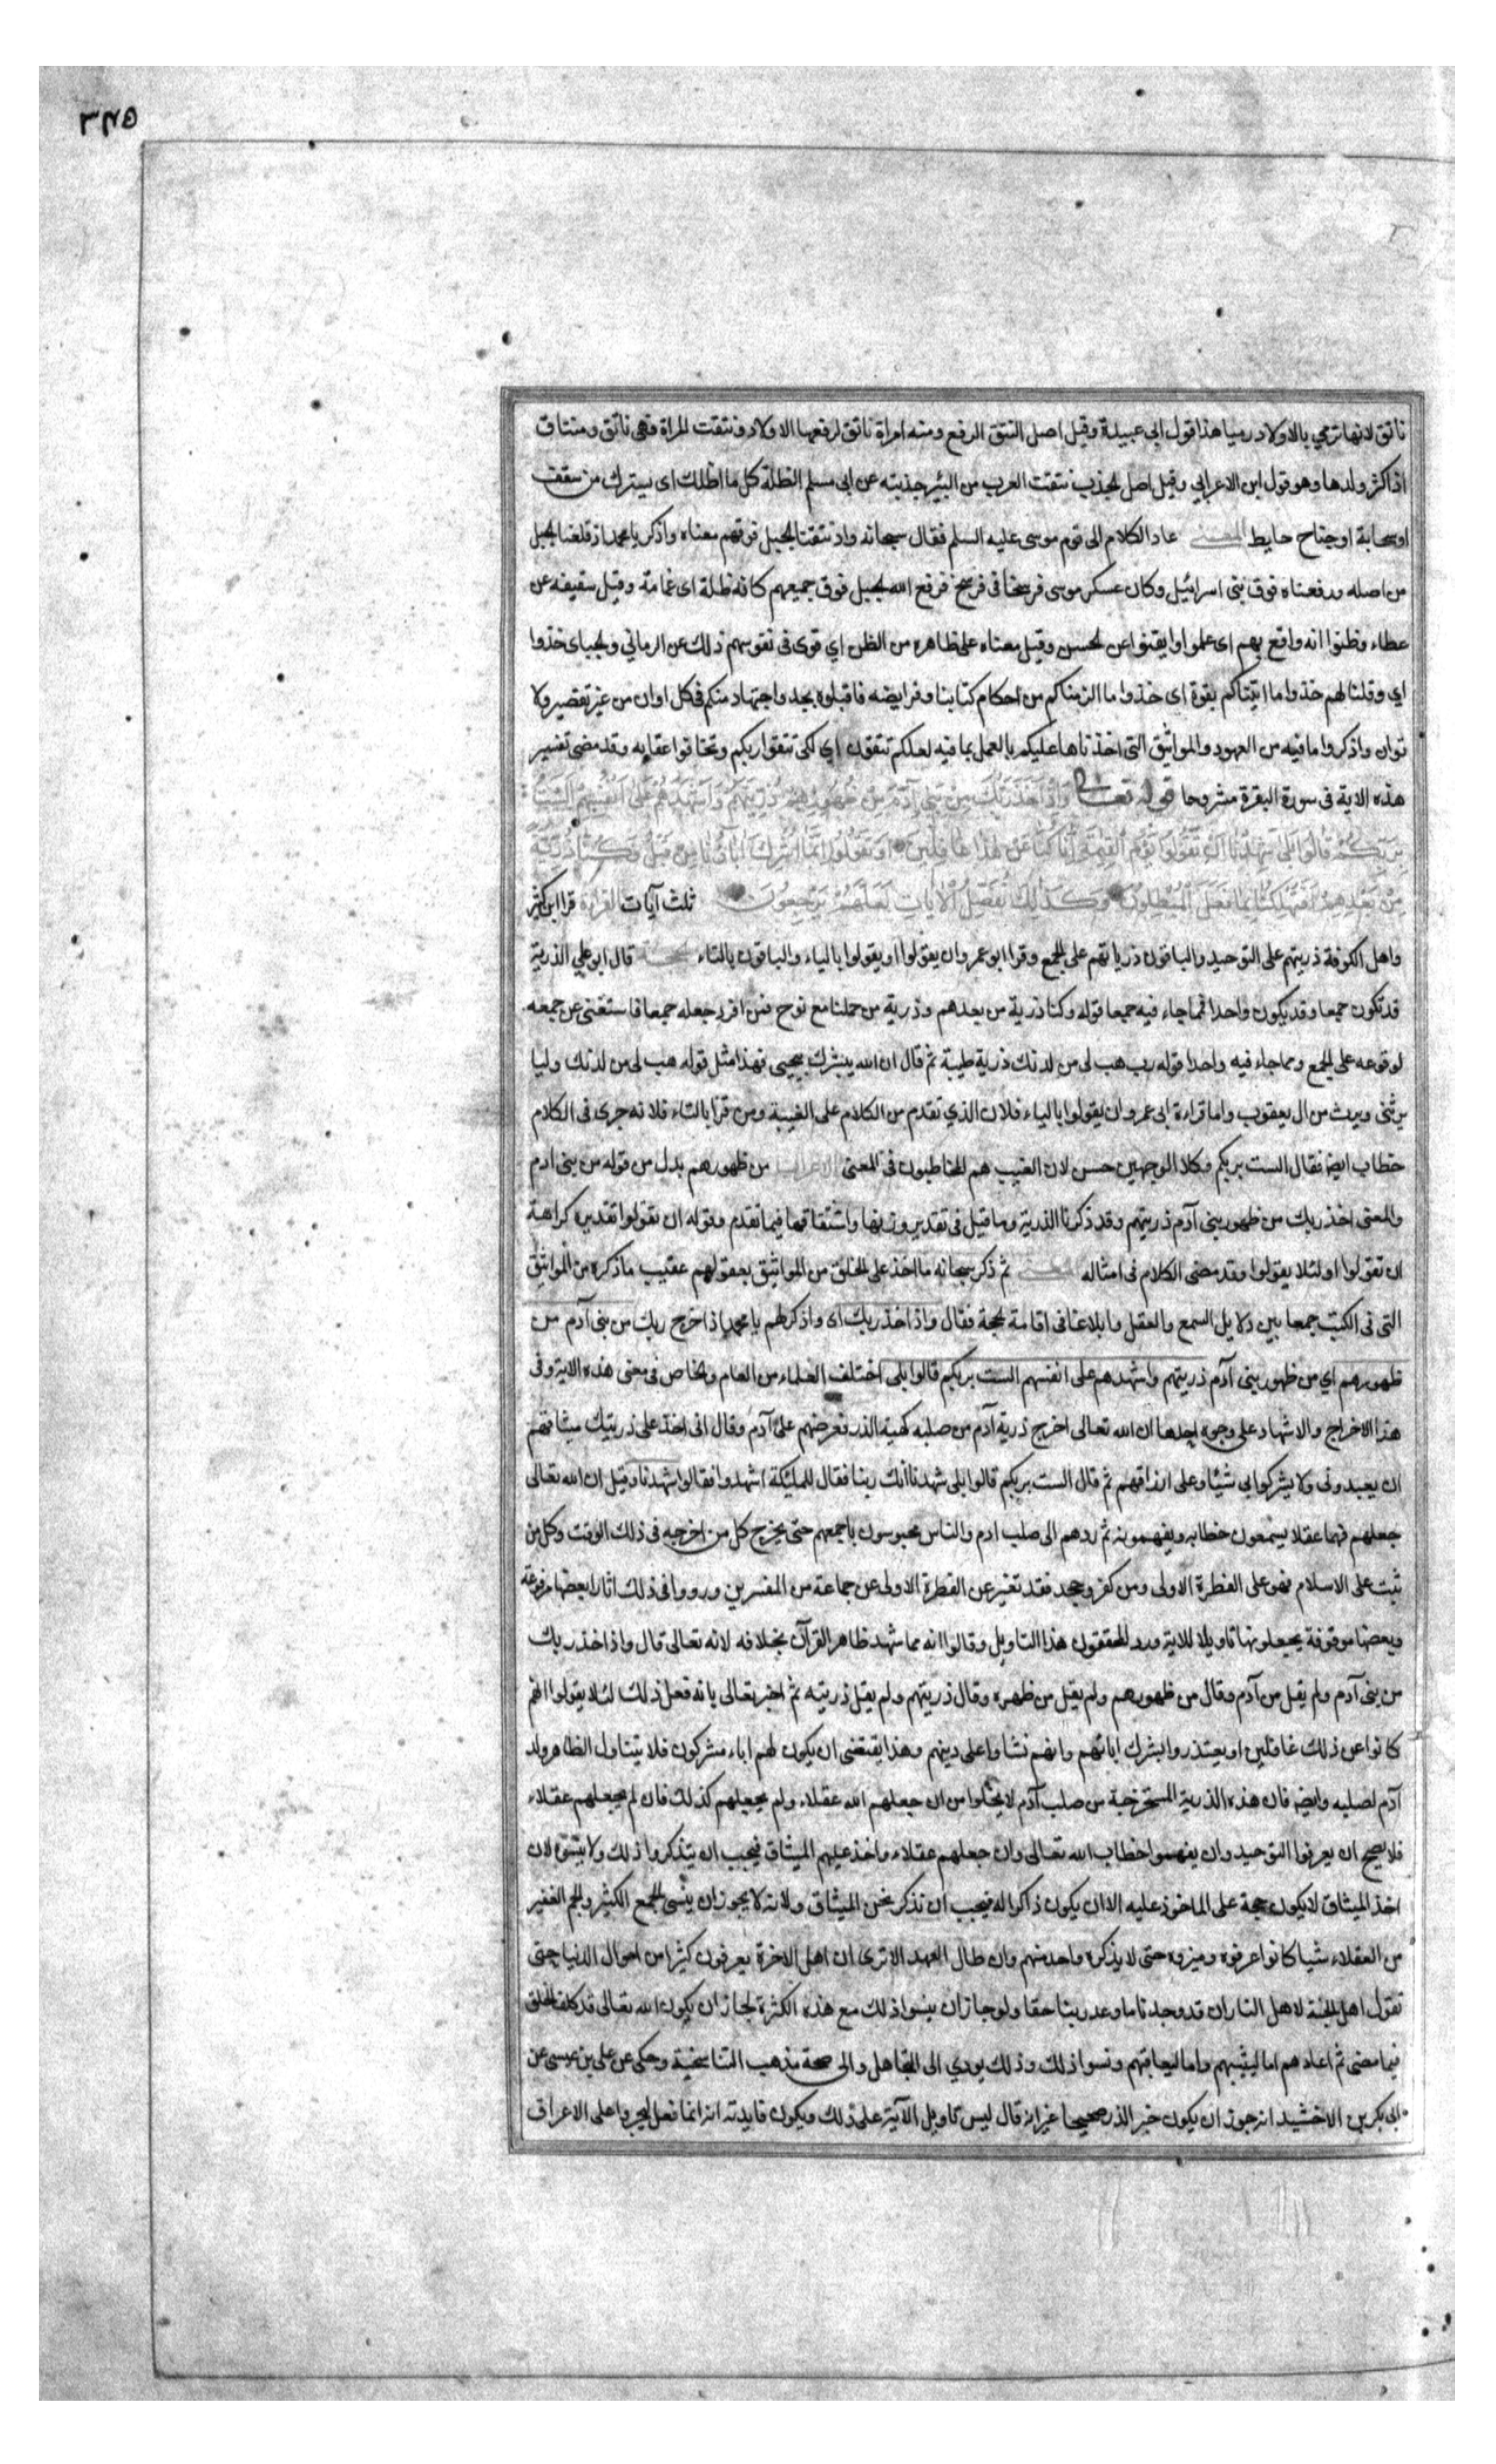 ناتق لانها ترمي بالاولاد رميا هذا قول ابي عبيدة وقيل اصل النتق الرفع ومنه امراة ناتق لرفعها الاولاد ونتقت المراة فهي ناتق ومنتاق
اذا كثر ولدها وهو قول ابن الاعرابي وقيل اصل الجذب نتقت العرب من البئر جذبته عن ابي مسلم الظلة كل ما اظلك اى سترك من سقف
او سحابة او جناح حايط المعنى عاد الكلام الى قوم موسى عليه السلم فقال سبحانه واذ نتقنا الجبل فوقهم معناه واذكر يا محمد اذ قلعنا الجبل
من اصله ورفعناه فوق بنى اسرائيل وكان عسكر موسى فرسخا فى فرسخ فرفع الله الجبل فوق جميعهم كانه ظلة اى غمامة وقيل سقيفه عن
عطاء وظنوا انه واقع بهم اى علموا وايقنوا عن الحسن وقيل معناه على ظاهره من الظن اي قوى فى نفوسهم ذلك عن الرماني والجباى خذوا
اي وقلنا لهم خذوا ما اتيناكم بقوة اى خذوا ما الزمناكم من احكام كتابنا وفرايضه فاقبلوه بجد واجتهاد منكم فى كل اوان من غير تقصير ولا
توان واذكروا ما فيه من العهود والمواثيق التى اخذناها عليكم بالعمل بما فيه لعلكم تتقون اي لكى تتقوا ربكم وتخافوا عقابه وقد مضى تفسير
هذه الاية فى سورة البقرة مشروحا قوله تعالى وَاِذْ اَخَذَ رَبُّكَ مِنْ بَنِي آدَمَ مِنْ ظُهُورِهِمْ ذُرِّيَّتَهُمْ وَاَشْهَدَهُمْ عَلَى اَنْفُسِهِمْ اَلَسْتُ
بِرَبِّكُمْ قَالُوا بَلَى شَهِدْنَا اَنْ تَقُولُوا يَوْمَ الْقِيٰمَةِ اِنَّا كُنَّا عَنْ هَذَا غَافِلِينَ اَوْ تَقُولُوا اِنَّمَا اَشْرَكَ آبَاؤُنَا مِنْ قَبْلُ وَكُنَّا ذُرِّيَّةً
مِنْ بَعْدِهِمْ اَفَتُهْلِكُنَا بِمَا فَعَلَ الْمُبْطِلُونَ وَكَذَلِكَ نُفَصِّلُ الْآيَاتِ لَعَلَّهُمْ يَرْجِعُونَ ثلث آيات القراءة قرا ابن كثير
واهل الكوفة ذريتهم على التوحيد والباقون ذرياتهم على الجمع وقرا ابو عمرو ان يقولوا او يقولوا بالياء والباقون بالتاء الحجة قال ابو علي الذرية
قد تكون جمعا وقد يكون واحدا فما جاء فيه جمعا قوله وكنا ذرية من بعدهم وذرية من حملنا مع نوح فمن افرد جعله جمعا فاستغنى عن جمعه
لوقوعه على الجمع ومما جاء فيه واحدا قوله رب هب لى من لدنك ذرية طيبة ثم قال ان الله يبشرك بيحيى فهذا مثل قوله هب لى من لدنك وليا
يرثنى ويرث من ال يعقوب واما قراءة ابى عمرو ان يقولوا بالياء فلان الذي تقدم من الكلام على الغيبة ومن قرا بالتاء فلانه جرى فى الكلام
خطاب ايضا فقال الست بربكم وكلا الوجهين حسن لان الغيب هم المخاطبون فى المعنى الاعراب من ظهورهم بدل من قوله من بنى ادم
والمعنى اخذ ربك من ظهور بنى آدم ذريتهم وقد ذكرنا الذرية وما قيل فى تقدير وزنها واشتقاقها فيما تقدم وقوله ان تقولوا تقديره كراهة
ان تقولوا او لئلا يقولوا وقد مضى الكلام فى امثاله المعنى ثم ذكر سبحانه ما اخذ على الخلق من المواثيق بعقولهم عقيب ما ذكره من المواثيق
التى فى الكتب جمعا بين دلايل السمع والعقل وابلاغا فى اقامة الحجة فقال واذ اخذ ربك اى واذكر لهم يا محمد اذ اخرج ربك من بنى آدم من
ظهورهم اي من ظهور بنى آدم ذريتهم واشهدهم على انفسهم الست بربكم قالوا بلى اختلف العلماء من العام والخاص فى معنى هذه الاية وفى
هذا الاخراج والاشهاد على وجوه احدها ان الله تعالى اخرج ذرية آدم من صلبه كهيئة الذر فعرضهم على آدم وقال انى اخذ على ذريتك ميثاقهم
ان يعبدونى ولا يشركوا بى شيئا وعلى ارزاقهم ثم قال الست بربكم قالوا بلى شهدنا انك ربنا فقال للمليكة اشهدوا فقالوا شهدنا وقيل ان الله تعالى
جعلهم فهما عقلا يسمعون خطابه ويفهمونه ثم ردهم الى صلب ادم والناس محبوسون باجمعهم حتى يخرج كل من اخرجه فى ذلك الوقت وكل من
ثبت على الاسلام فهو على الفطرة الاولى ومن كفر وجحد فقد تغير عن الفطرة الاولى عن جماعة من المفسرين ورووا فى ذلك اثارا بعضها مرفوعة
وبعضها موقوفة يجعلونها تاويلا للاية ورد المحققون هذا التاويل وقالوا انه مما شهد ظاهر القرآن بخلافه لانه تعالى قال واذ اخذ ربك
من بنى آدم ولم يقل من آدم وقال من ظهورهم ولم يقل من ظهره وقال ذريتهم ولم يقل ذريته ثم اخبر تعالى بانه فعل ذلك لئلا يقولوا انهم
كانوا عن ذلك غافلين او يعتذروا بشرك ابائهم وانهم نشاوا على دينهم وهذا يقتضى ان يكون لهم اباء مشركون فلا يتناول الظاهر ولد
آدم لصلبه وايضا فان هذه الذرية المستخرجة من صلب آدم لا يخلوا من ان جعلهم الله عقلاء ولم يجعلهم كذلك فان لم يجعلهم عقلاء
فلا يصح ان يعرفوا التوحيد وان يفهموا خطاب الله تعالى وان جعلهم عقلاء واخذ عليهم الميثاق فيجب ان يتذكروا ذلك ولا ينسوه لان
اخذ الميثاق لا يكون حجة على الماخوذ عليه الا ان يكون ذاكرا له فيجب ان نذكر نحن الميثاق ولانه لا يجوز ان ينسى الجمع الكثير والجم الغفير
من العقلاء شيا كانوا عرفوه وميزوه حتى لا يذكره واحد منهم وان طال العهد الا ترى ان اهل الاخرة يعرفون كثيرا من احوال الدنيا حتى
تقول اهل الجنة لاهل النار ان قد وجدنا ما وعدنا ربنا حقا ولو جاز ان ينسوا ذلك مع هذه الكثرة لجاز ان يكون الله تعالى قد كلف الخلق
فيما مضى ثم اعادهم اما ليثيبهم واما ليعاقبهم ونسوا ذلك وذلك يودي الى التجاهل والى صحة مذهب التناسخية وحكى عن على بن عيسى عن
ابى بكر بن الاخشيد انه جوز ان يكون خبر الذر صحيحا غير انه قال ليس تاويل الآية على ذلك ويكون فايدته انه انما فعل ليجروا على الاعراق